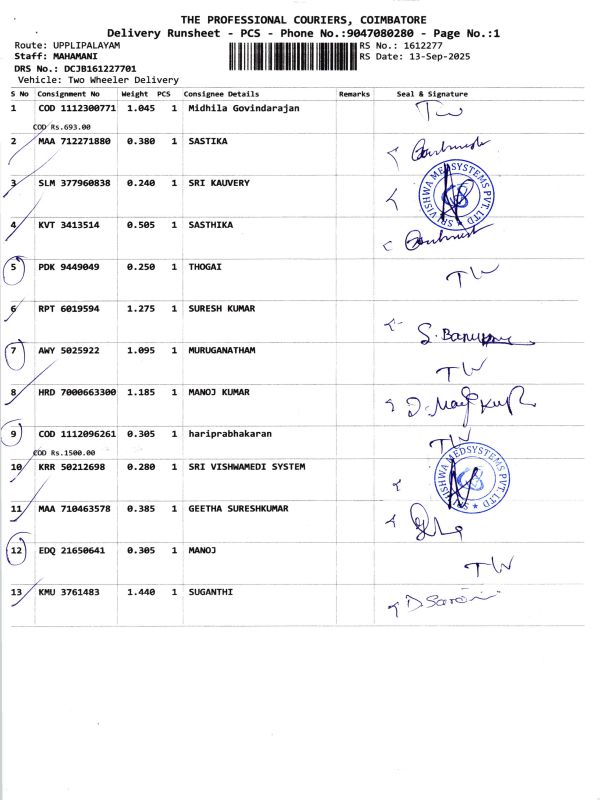 THE PROFESSIONAL COURIERS, COIMBATORE
Delivery Runsheet - PCS - Phone No.:9047080280 - Page No.:1
Route: UPPLIPALAYAM RS No.: 1612277
Staff: MAHAMANI RS Date: 13-Sep-2025
DRS No.: DCJB161227701
Vehicle: Two Wheeler Delivery
S No Consignment No Weight PCS Consignee Details Remarks Seal & Signature
1 COD 1112300771 1.045 1 Midhila Govindarajan TW
COD Rs.693.00
2 MAA 712271880 0.380 1 SASTIKA
3 SLM 377960838 0.240 1 SRI KAUVERY SRI VISHWA MEDSYSTEMS PVT LTD
4 KVT 3413514 0.505 1 SASTHIKA
5 PDK 9449049 0.250 1 THOGAI TW
6 RPT 6019594 1.275 1 SURESH KUMAR
7 AWY 5025922 1.095 1 MURUGANATHAM TW
8 HRD 7000663300 1.185 1 MANOJ KUMAR
9 COD 1112096261 0.305 1 hariprabhakaran TW
COD Rs.1500.00
10 KRR 50212698 0.280 1 SRI VISHWAMEDI SYSTEM SRI VISHWA MEDSYSTEMS PVT LTD
11 MAA 710463578 0.385 1 GEETHA SURESHKUMAR
12 EDQ 21650641 0.305 1 MANOJ TW
13 KMU 3761483 1.440 1 SUGANTHI